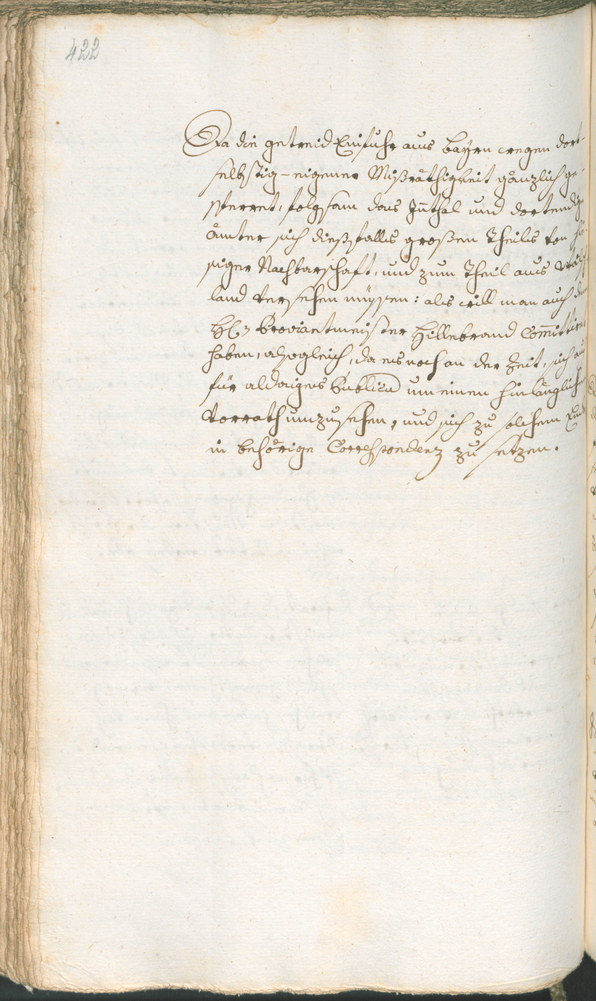 422
Da die getreid Einfuhr aus Bayrn wegen dort-
selbstig-eigener Mißräthigkeit gänzlich ge-
sperret, folgsam das Innthal und dortendige
ämter sich dießfalls großen Theils von
siger Nachbarschaft, und zum Theil aus
land versehen müssen: als will man auch dem
H: Proviantmeister Hillebrand Committiret
haben, alsogleich, da es noch an der Zeit, sich
für aldaiges Publicum um einen hinlänglichen
vorrath umzusehen, und sich zu solchem Ende
in behörige Correspondenz zu setzen.